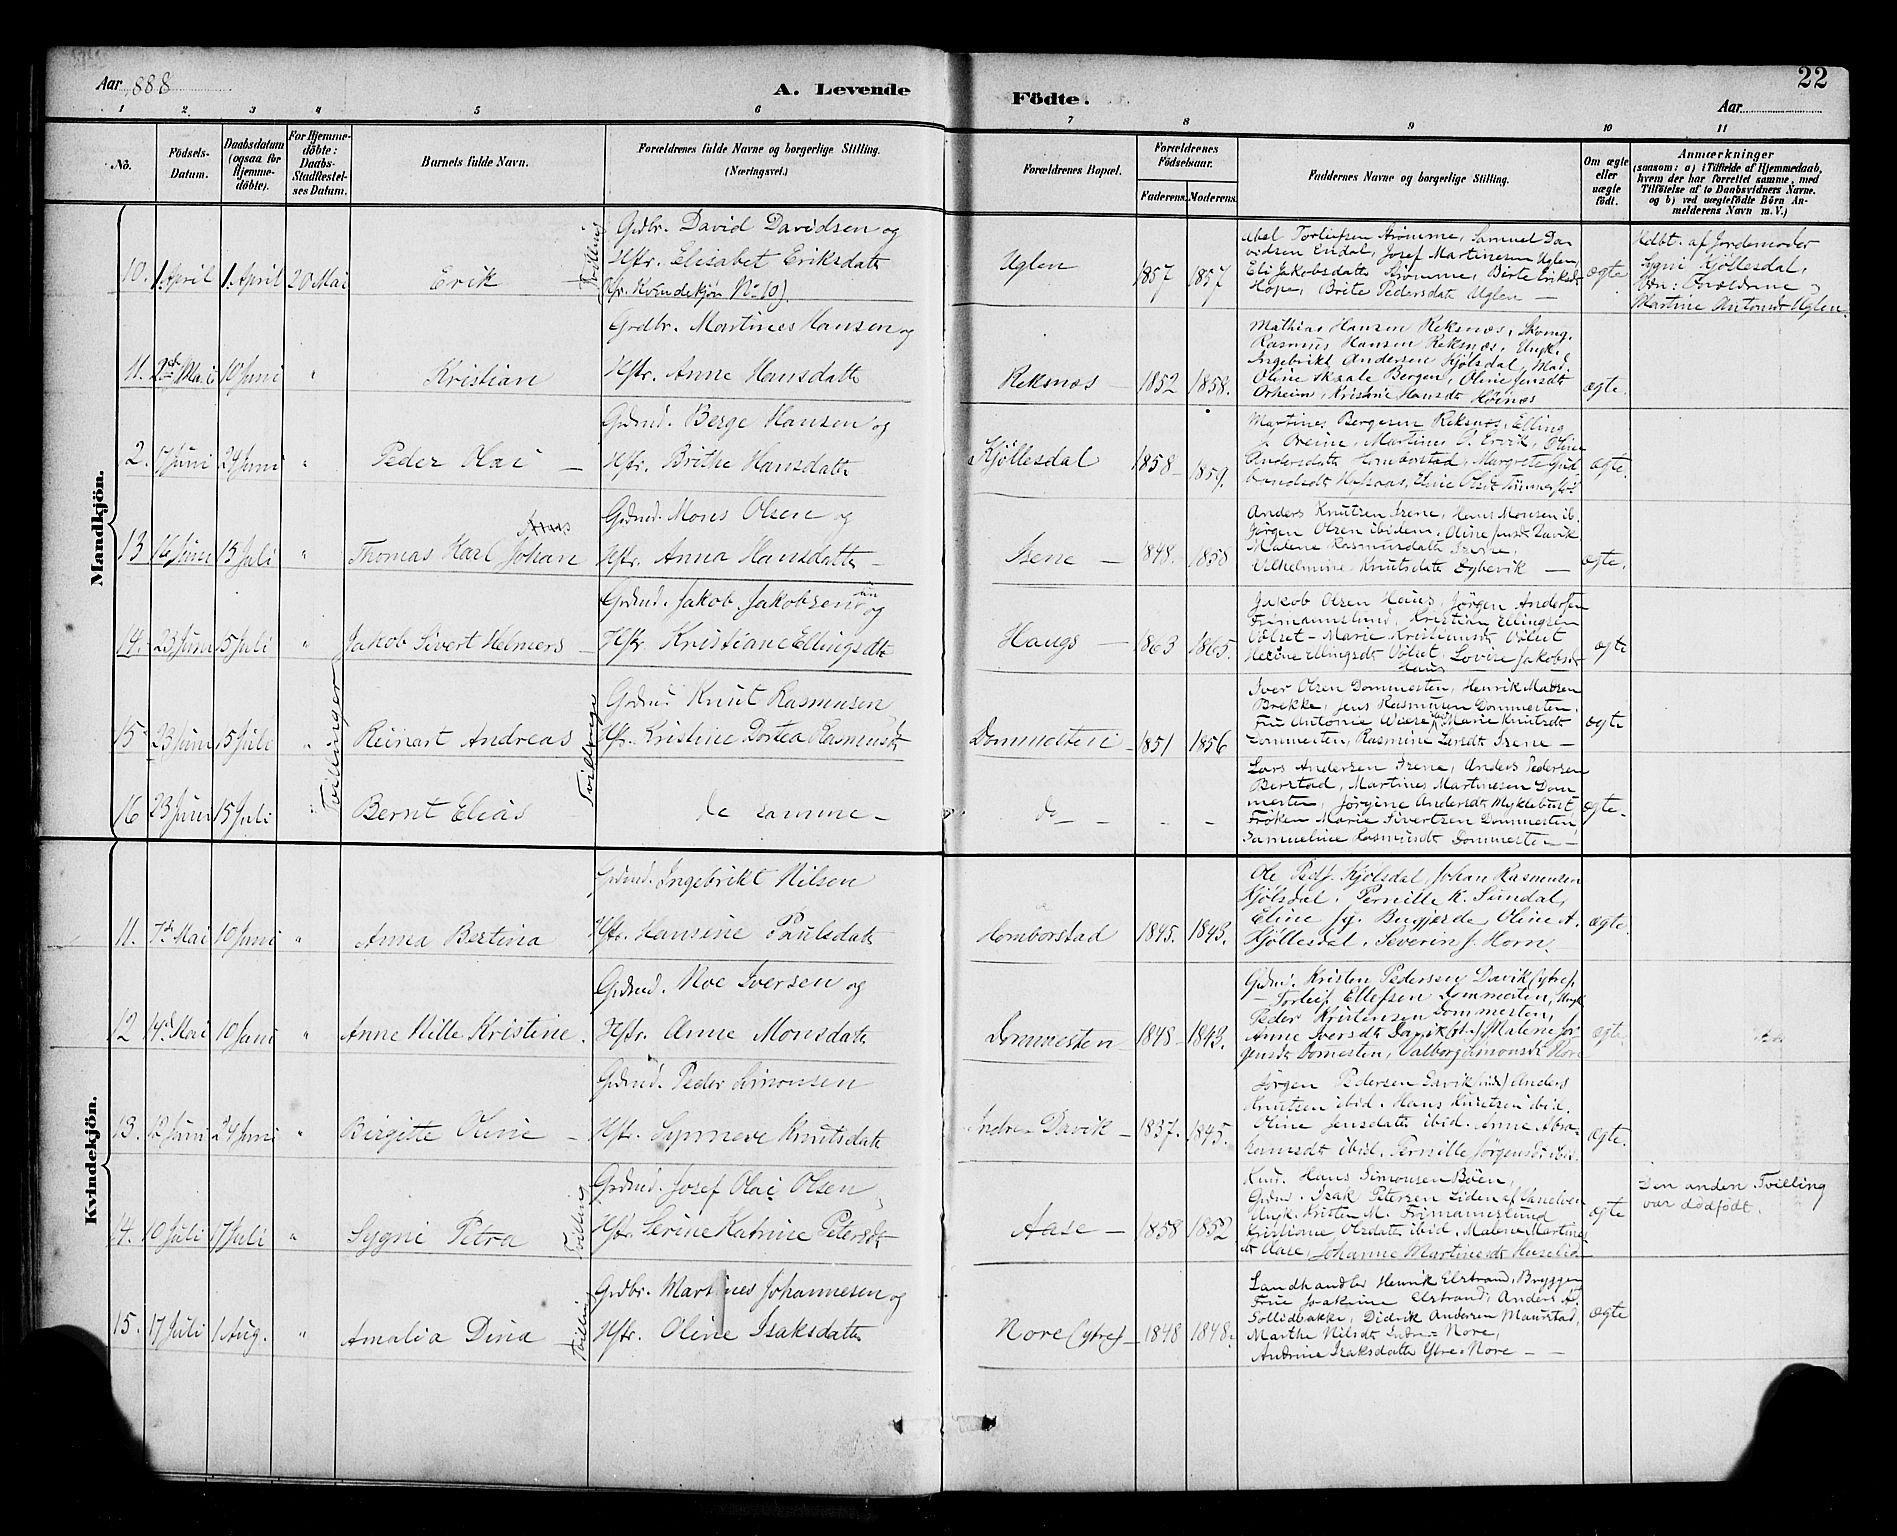 22
Aar 1888
A. Levende Födte.
Aar
1 2. 3 4 5 6 7 8 9 10 11
No.
Födsels-Datum.
Daabsdatum (ogsaa for Hjemme-döbte).
For Hjemme-döbte: Daabs-Stadfæstel-ses Datum.
Barnets fulde Navn.
Forældrenes fulde Navne og borgerlige Stilling. (Næringsvei.)
Forældrenes Bopæl.
Forældrenes Födselsaar.
Faderens. Moderens.
Faddernes Navne og borgerlige Stilling.
Om ægte eller uægte födt.
Anmærkninger
(saasom: a) i Tilfælde af Hjemmedaab,
hvem der har forrettet samme, med
Tilföielse af to Daabsvidners Navne.
og b) ved uægtefödte Börn An-
melderens Navn m. V.)
Mandkjön.
10. 1 April 1. April 20 Mai Erik
Tvilling
Grdbr. David Davidsen og
Hstr. Elisabet Eriksdatter
(cfr. Kvindekjøn No 10).
Uglen 1857 1857
Abel Torleifsen Strømme, Samuel Da-
vidsen Endal, Josef Martinesen Uglen,
Eli Jakobsdatter Strømme, Birte Eriksdt
Hope, Brite Pedersdatr Uglen —
ægte
Hdbt. af Jordemoder
Sygni Kjöllesdal,
Vdn: Forældrene og
Martine Antonsdt Uglen.
11. 2den Mai 10 Juni " Kristian
Grdbr. Martines Hansen og
Hstr. Anne Hansdatter
Reksnæs — 1852 1858.
Mathias Hansen Reksnæs,
Rasmus Hansen Reksnæs, Ungk.
Ingebrikt Andersen Kjölsdal, Mad.
Oline Skaale Bergen, Oline Jensdt
Orheim, Kristine Hansdt Höinæs
ægte.
12. 7 Juni 24 Juni " Peder Olai —
Grdmd. Berge Hansen og
Hstr. Brithe Hansdatter
Kjöllesdal 1858 1859.
Martines Bergesen Reksnæs, Elling
J. Oreine, Martines P. Ervik, Oline
Andersdatter Homborstad, Margrete Gud-
ægte.
13 16 Juni 15 Juli " Thomas Karl Johan
Grdmd. Mons Olsen og
Hstr. Anna Hansdatter —
Isene — 1848. 1850
Anders Knutsen Isene, Hans Monsen ib.
Jörgen Olsen ibidem, Oline Jensdt Davik
Malene Rasmusdatter Isene,
Vilhelmine Knutsdatr —
ægte.
14. 23 Juni 15 Juli " Jakob Sivert Helmers —
Grdmd. Jakob Jakobsen og
Hstr. Kristiane Ellingsdtr
Haugs — 1863 1865.
Jakob Olsen Haus, Jörgen Andersen
Frimannslund, Kristian Ellingsen
Völset — Marie Kristiansdt Völset
Ellingsdt Völset, Lovise Jakobsdt
Haus
ægte
Tvillinger
15. 23 Juni 15 Juli " Reinart Andreas
Tvillinge
Grdmd Knut Rasmusen
Hstr. Kristine Dortea Rasmusdtr
Dommesten 1851 1856
Iver Olsen Dommesten, Henrik Madsen
Brekke, Jens Rasmusen Dommesten.
Fru Antonie Marie Knutsdt
Dommesten, Rasmine Larsdt Isene —
ægte
16 23 Juni 15 Juli Bernt Elias
de samme —
do — - - -
Lars Andersen Isene, Anders Pedersen
Berstad, Martines Martinesen Dom-
mesten, Jörgine Andersdt Myklebust
Fröken Marie Sivertsen Dommesten,
Sammeline Rasmusdt Dommesten —
ægte.
Kvindekjön.
11. 7de Mai 10 Juni " Anna Bertina
Grdmd. Ingebrikt Nilsen
Hstr. Hansine Paulsdatr
Homborstad 1845. 1843.
Ole Kjölsdal, Johan Rasmusen
Kjölsdal. Pernille K. Sundal,
Eline Bugjerde, Oline A.
Kjöllesdal. Severin J. Horn.
ægte.
12 14de Mai 10 Juni " Anne Mille Kristine.
Grdmd. Noe Iversen og
Hstr. Anne Monsdatter
Dommesten 1848 1843.
Grdmd. Kristen Pedersen Davik (ytre).
— Torleif Ellefsen Dommesten, Ungk
Peder Kristensen Dommesten,
Anne Iversdt Davik (yt.) Malene Jör-
gensdt Domesten, Valborg Simonsdt Nore
ægte.
13. 12 Juni 24 Juni " Birgitte Oline —
Grdmd. Peder Simonsen
Hstr. Synneve Knutsdatr
Indre Davik — 1837. 1845.
Jörgen Pedersen Davik (indre) Anders
Knutsen ibid. Hans Knutsen ibid.
Oline Jensdatter ibid. Anne Abra-
hamsdt ibid. Pernille Jörgensdt ibid.
ægte.
14. 10 Juli 17 Juli " Sygni Petra
Tvilling
Grdmd. Josef Olai Olsen
Hstr. Serine Katrine Petersdtr
Aase — 1858 1852
Hans Simonsen Böen,
Grdmd. Isak Petersen
Ungk. Kristen M. Frimannslund
Kristiane Olsdatter ibid. Malene Martines-
dt Aase, Johanne Martinesdt
ægte
Den anden Tvilling
var dödfödt.
15. 17 Juli 1 Aug. " Amalia Dina —
Tvilling
Grdbr. Martines Johannesen og
Hstr. Oline Isaksdatter
Nore (ytre) — 1848 1848.
Landhandler Henrik Elstrand, Bryggen
Frue Joakime Elstrand. Anders A.
Sollidbakke, Didrik Andersen Maurstad,
Marthe Nilsdt Indre Nore,
Andrine Isaksdatter Ytre Nore — —
ægte